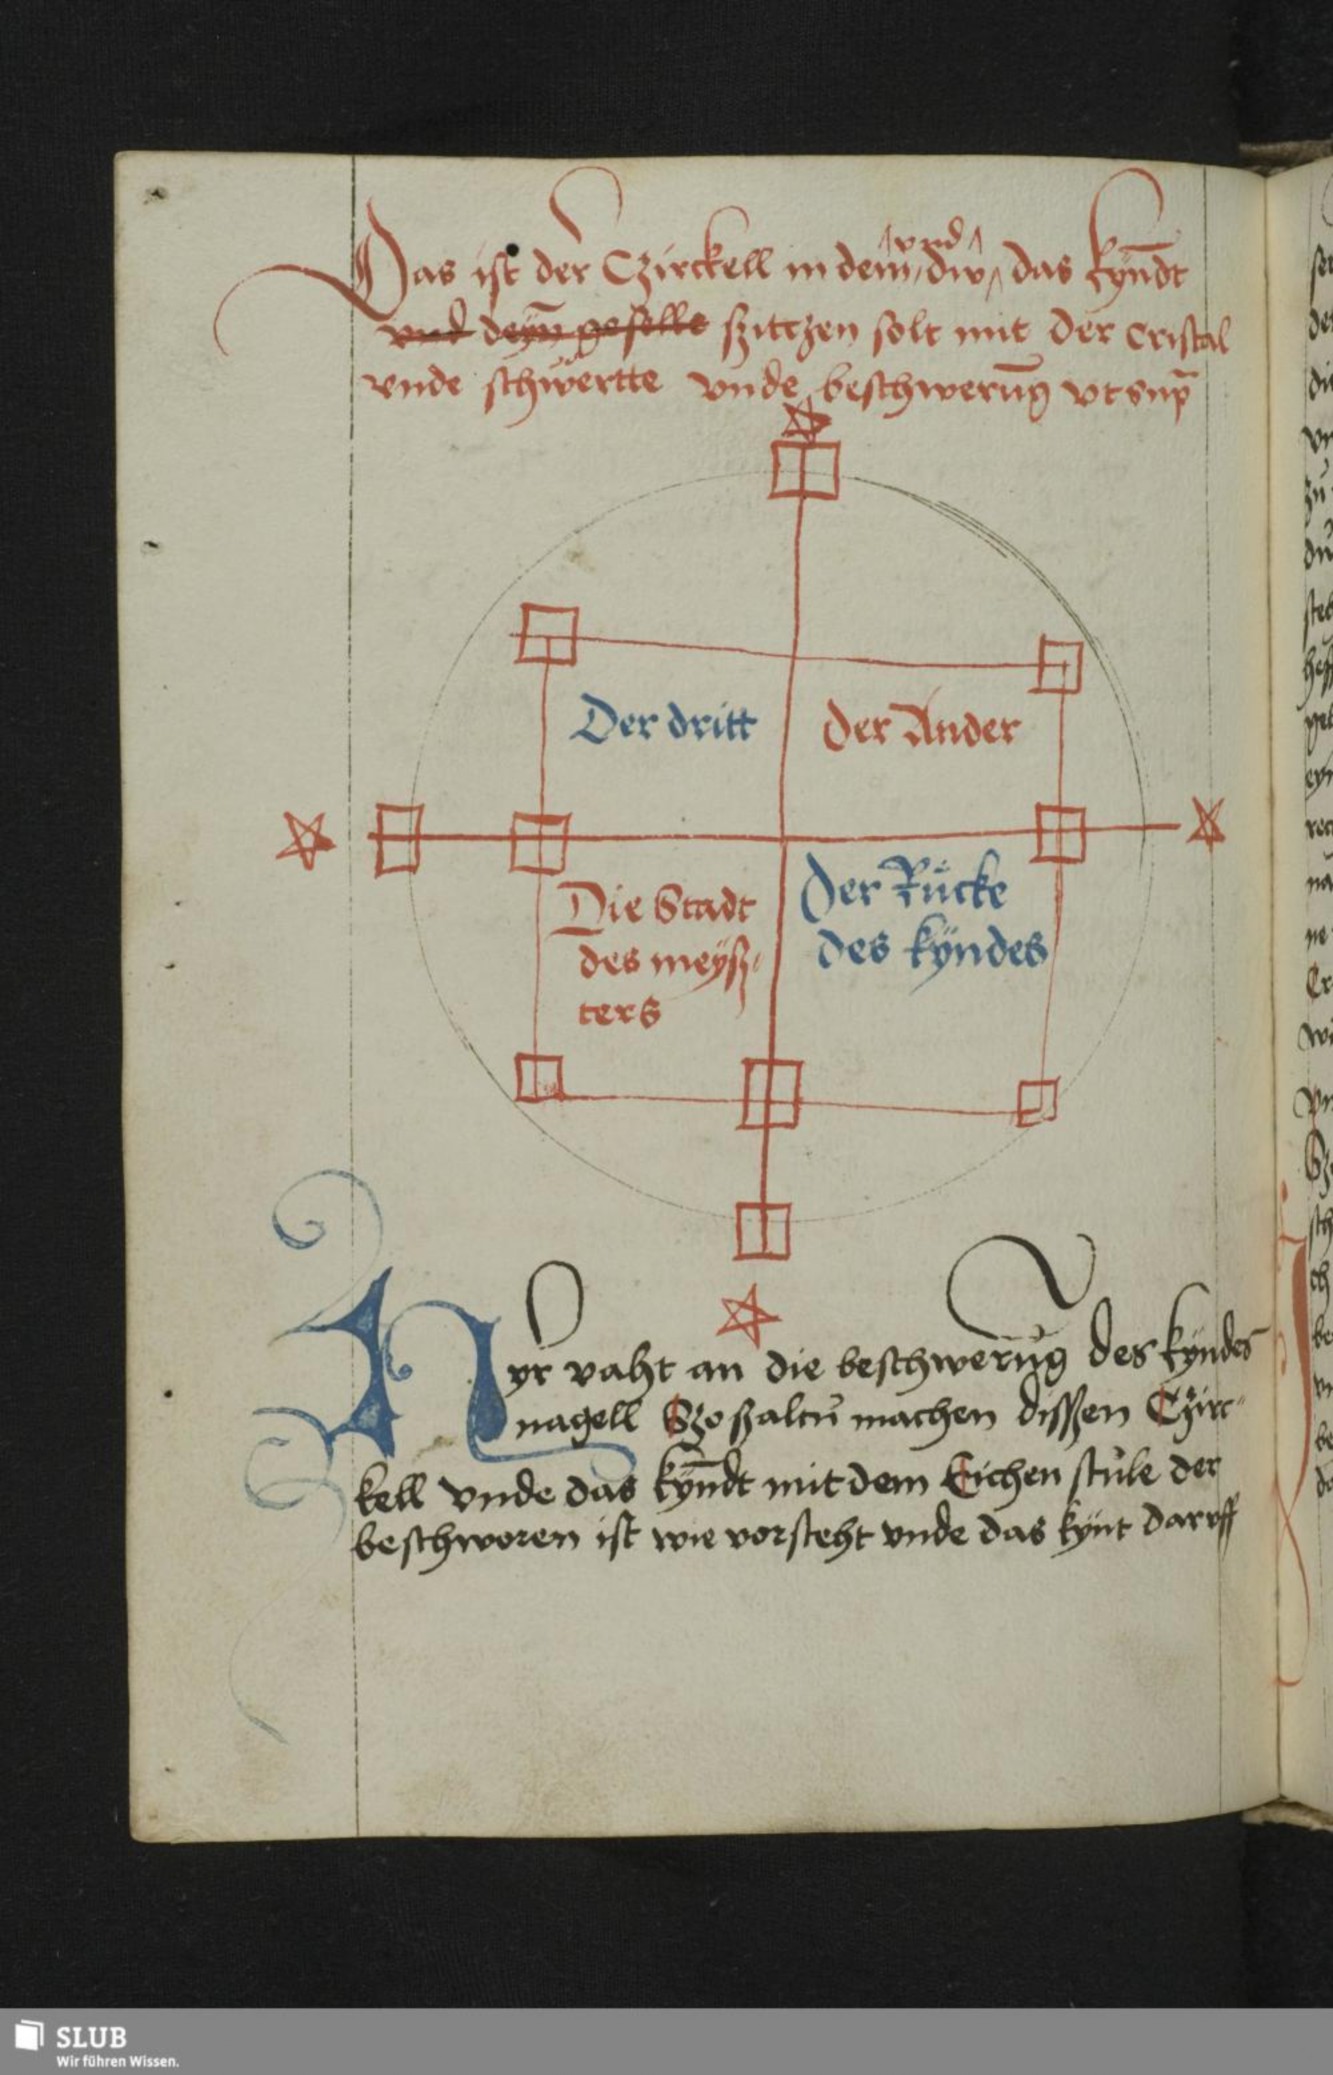 vnd
Das ist der Czirckell in dem, du, das kyn̄dt
vnd deyn̄ geselle szittzen solt mit der Cristal
vnde schwertte vnde beschwerun̄g vt sup̄
Der dritt
der Ander
Die Stadt
des meysz-
ters
Der Rucke
des kyndes
Hyr vaht an die beschwerun̄g des kyndes
nagell Szo szaltu machen disszen Czirc-
kell vnde das kyn̄dt mit dem Eichen stule der
beschworen ist wie vorsteht vnde das kynt daruff
SLUB
Wir führen Wissen.